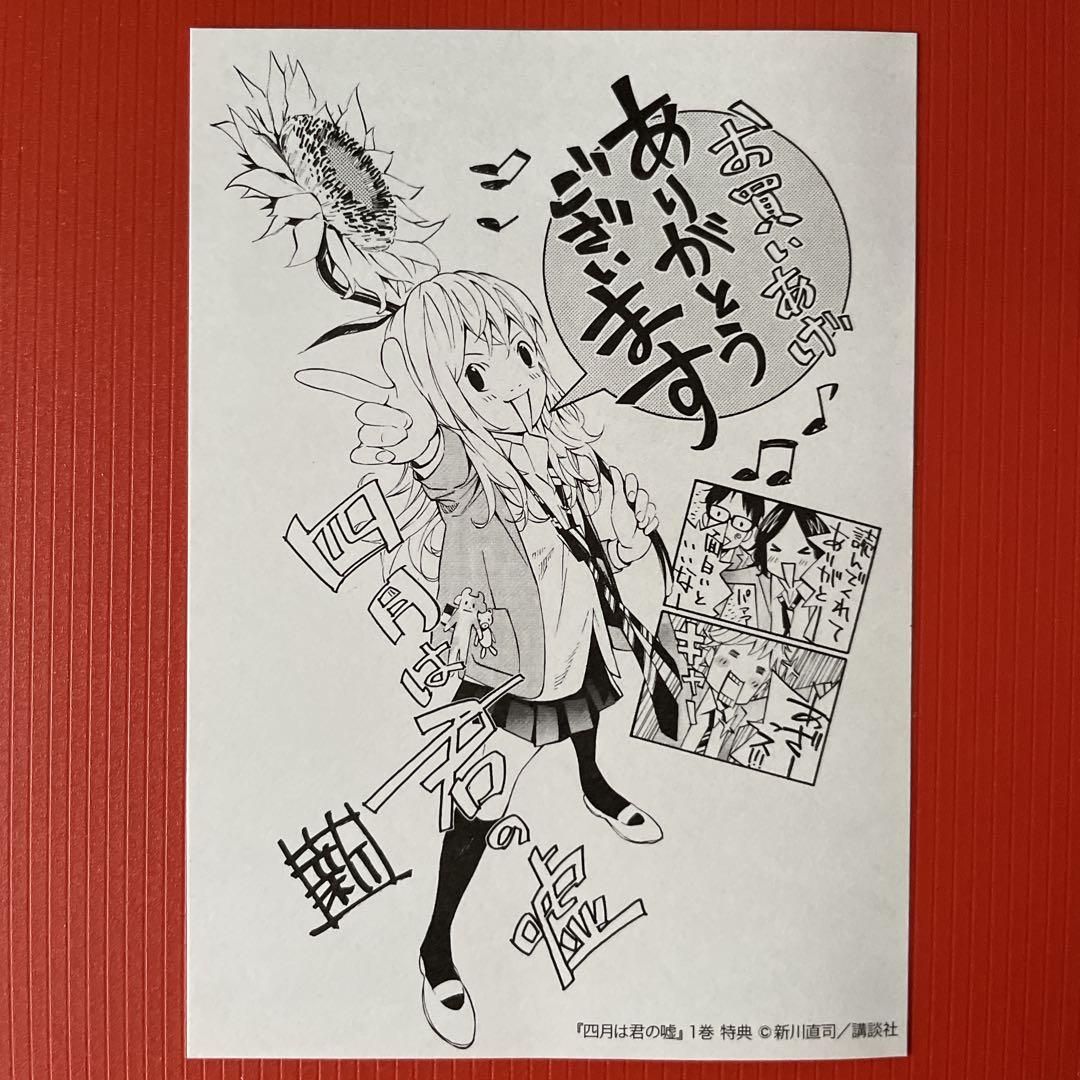 お買いあげ
ありがとう
ございます
読んでくれて
ありがと
面白いと
いいなー
パァァ
あざーース!!!
キャー
四月は君の嘘
『四月は君の嘘』1巻 特典 ©新川直司／講談社